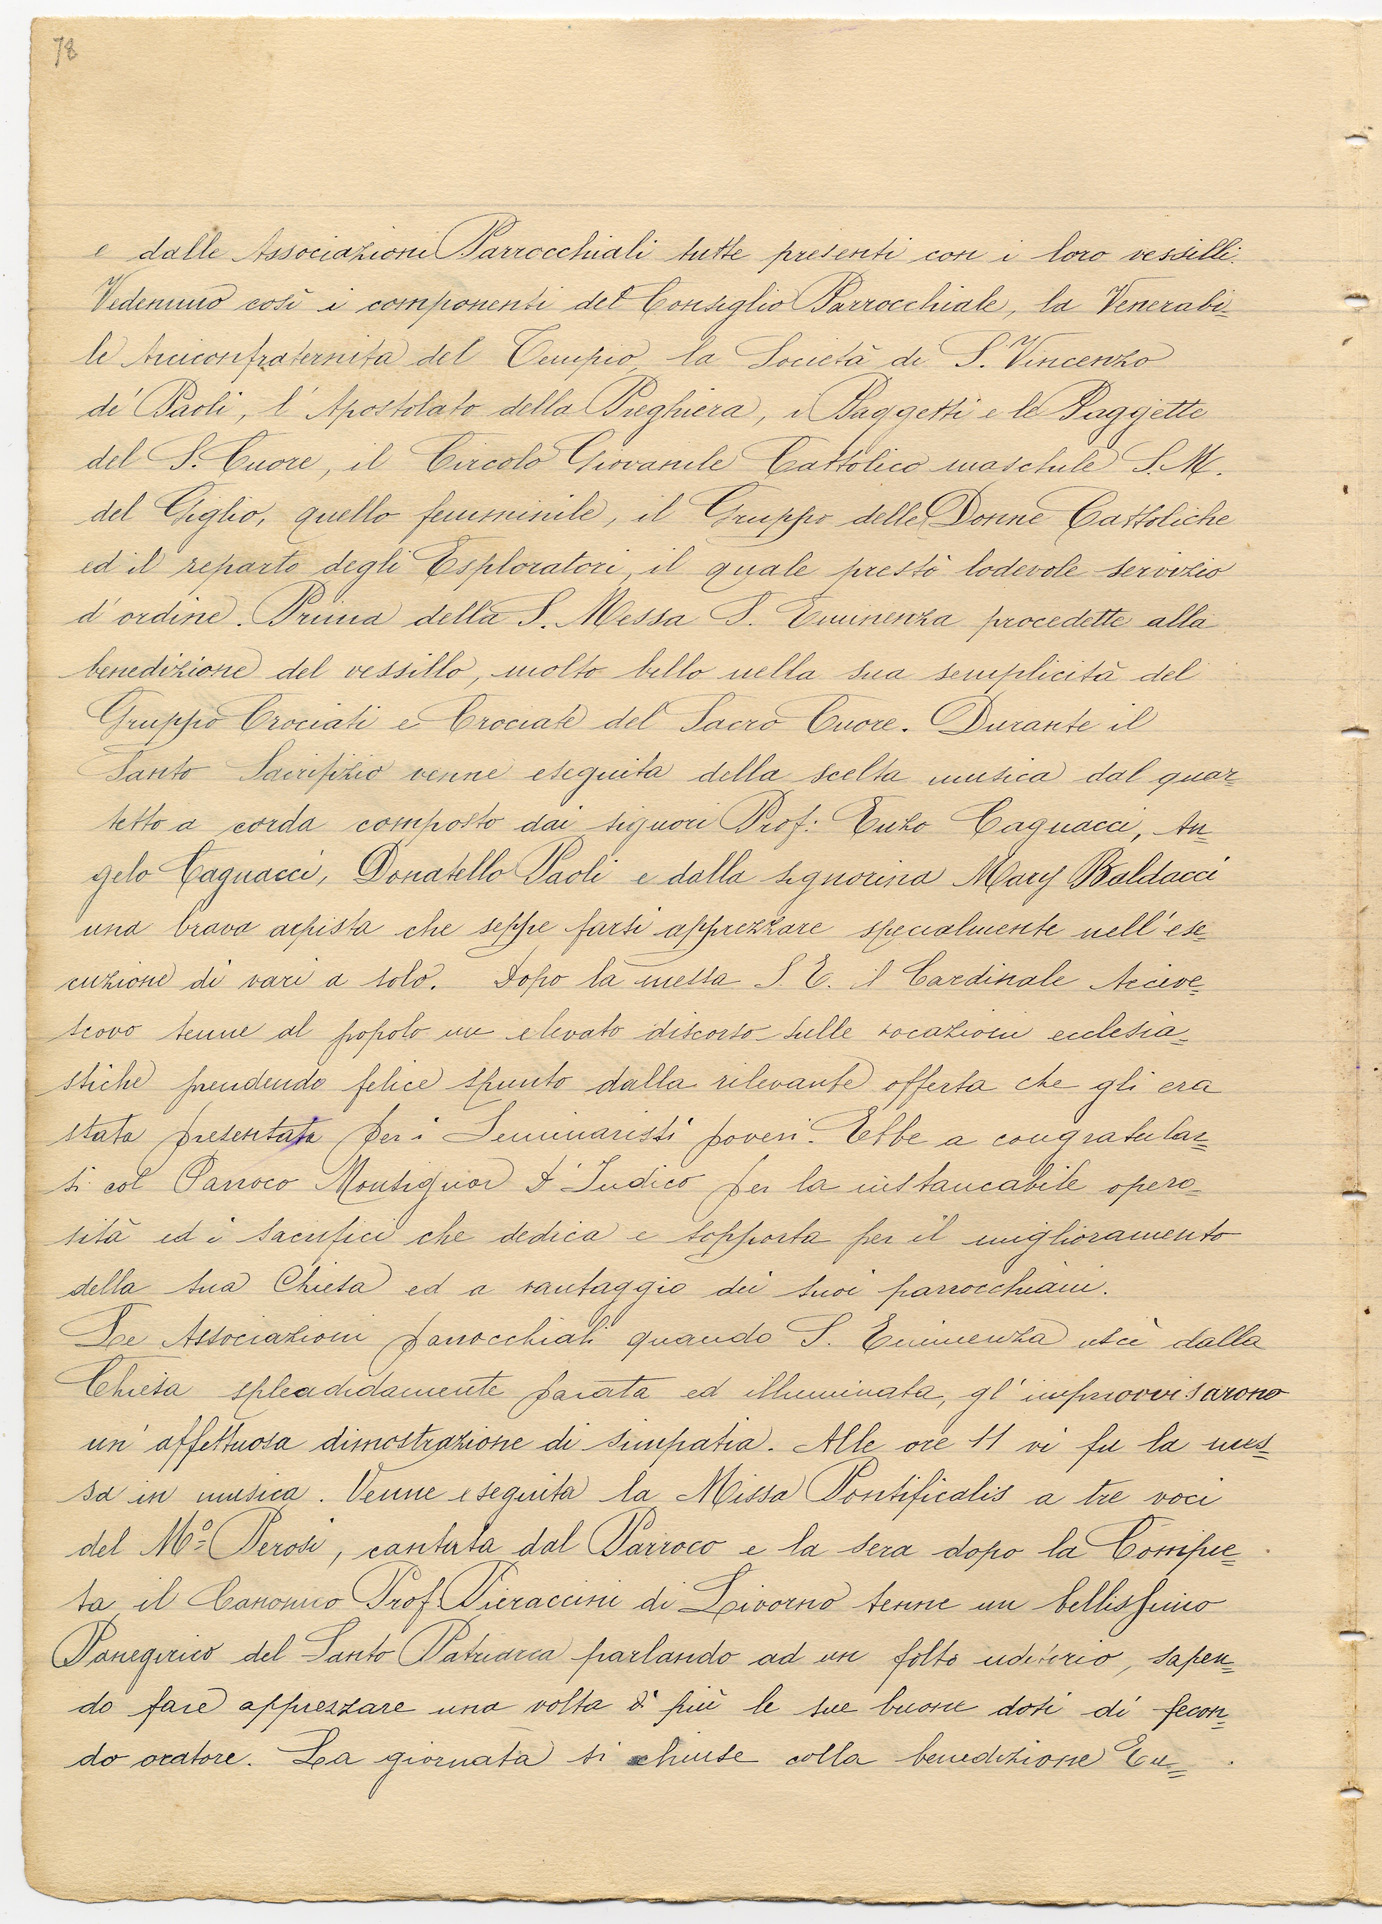 78
e dalle Associazioni Parrocchiali tutte presenti con i loro vessilli.
Vedemmo così i componenti del Consiglio Parrocchiale, la Venerabi=
le Arciconfraternita del Tempio, la Società di S. Vincenzo
de' Paoli, l'Apostolato della Preghiera, i Paggetti e le Paggette
del S. Cuore, il Circolo Giovanile Cattolico maschile S. M.
del Giglio, quello femminile, il Gruppo delle Donne Cattoliche
ed il reparto degli Esploratori, il quale prestò lodevole servizio
d'ordine. Prima della S. Messa S. Eminenza procedette alla
benedizione del vessillo, molto bello nella sua semplicità del
Gruppo Crociati e Crociate del Sacro Cuore. Durante il
Santo Sacrifizio venne eseguita della scelta musica dal quar=
tetto a corda composto dai signori Prof: Enzo Cagnacci, An=
gelo Cagnacci, Donatello Paoli e dalla signorina Mary Baldacci
una brava arpista che seppe farsi apprezzare specialmente nell'ese=
cuzione di vari a solo. Dopo la messa S. E. il Cardinale Arcive=
scovo tenne al popolo un elevato discorso sulle vocazioni ecclesia=
stiche prendendo felice spunto dalla rilevante offerta che gli era
stata presentata per i Seminaristi poveri. Ebbe a congratular=
si col Parroco Monsignor D'Indico per la instancabile opero=
sità ed i sacrifici che dedica e sopporta per il miglioramento
della sua Chiesa ed a vantaggio dei suoi parrocchiani.
Le Associazioni parrocchiali quando S. Eminenza uscì dalla
Chiesa splendidamente parata ed illuminata, gl'improvvisarono
un'affettuosa dimostrazione di simpatia. Alle ore 11 vi fu la mes=
sa in musica. Venne eseguita la Missa Pontificalis a tre voci
del Mº Perosi, cantata dal Parroco e la sera dopo la Compie=
ta il Canonico Prof. Pieraccini di Livorno tenne un bellissimo
Panegirico del Santo Patriarca parlando ad un folto uditorio, sapen=
do fare apprezzare una volta di più le sue buone doti di fecon=
do oratore. La giornata si chiuse colla benedizione Eu=